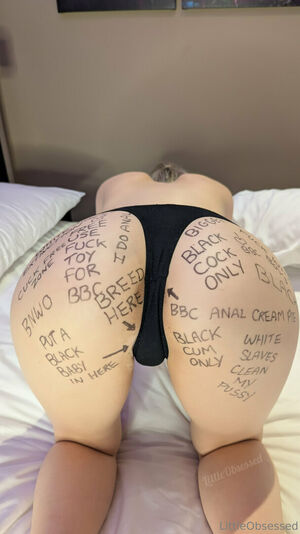 FREE
USE
FUCK
TOY
FOR
BBC
I DO ANAL
BNWO
BREED
HERE
PUT A
BLACK
BABY
IN HERE
BLACK
COCK
ONLY
BLA
BBC ANAL CREAM PIE
BLACK
CUM
ONLY
WHITE
SLAVES
CLEAN
MY
PUSSY
LittleObsessed
LittleObsessed